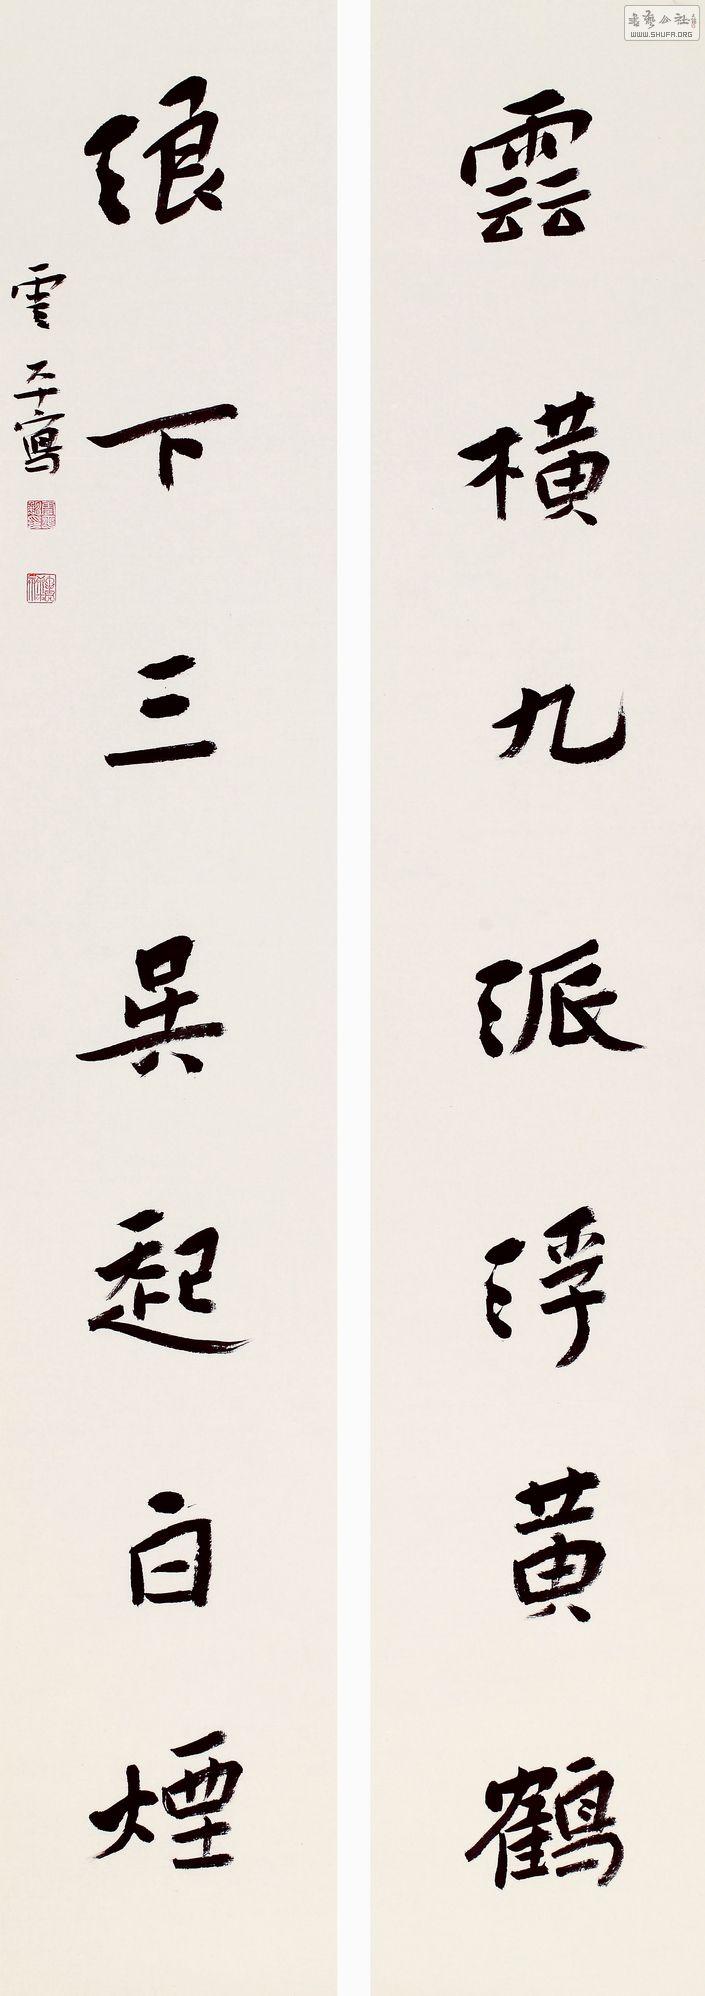 雲橫九派浮黄鶴
浪下三吳起白煙
雲平寫
書藝公社
WWW.SHUFA.ORG